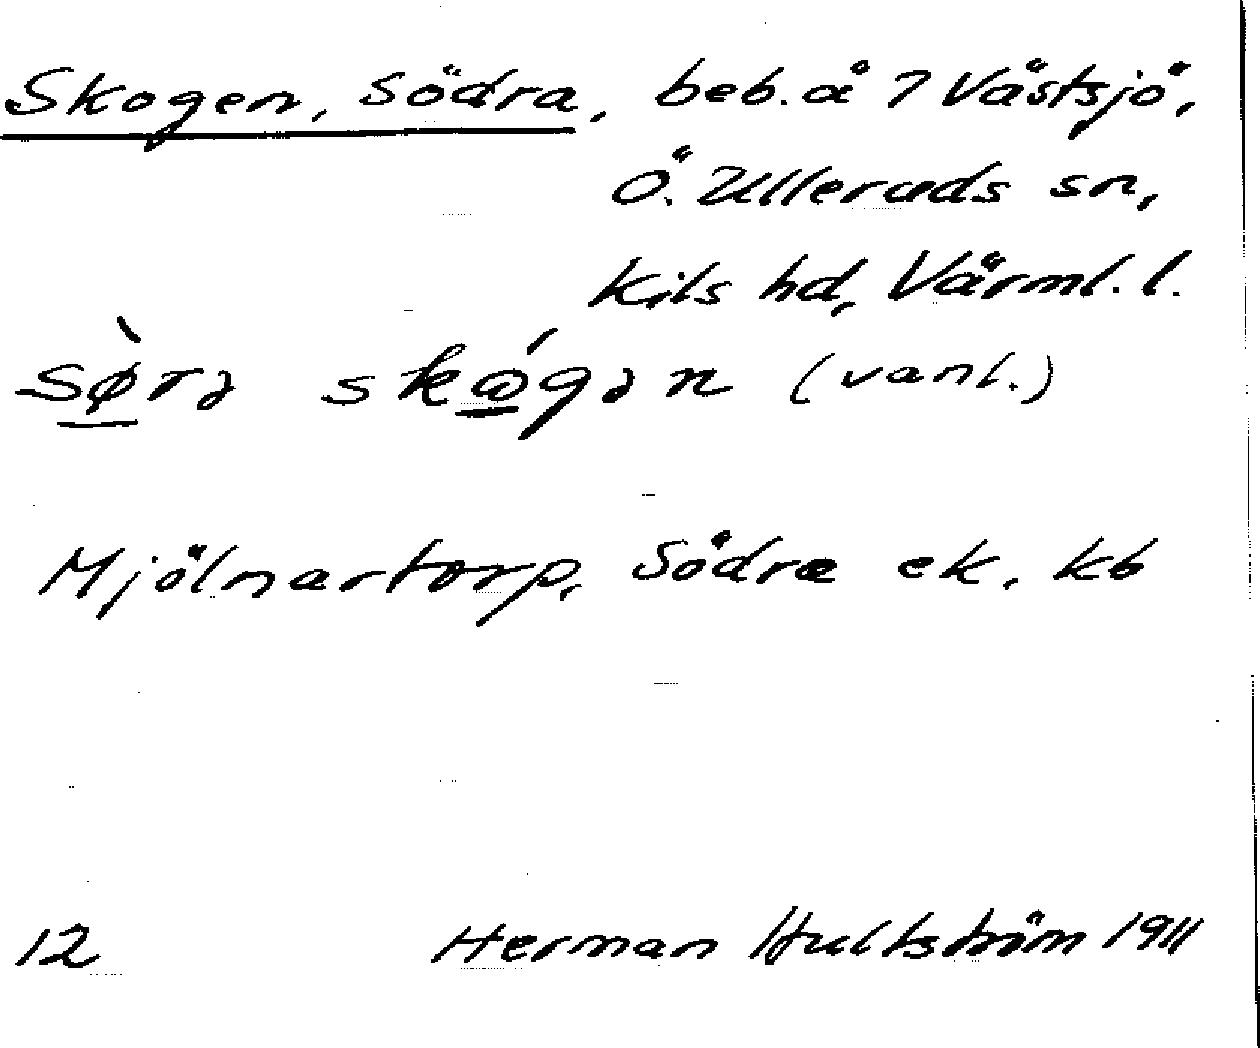 Skogen, Södra, beb. å 7 Västsjö,
Ö. Ulleruds sn,
Kils hd, Värml. l.
sø̀rə skógən (vanl.)
Mjölnartorp, Södra ek. kb
12 Herman Hultström 1911